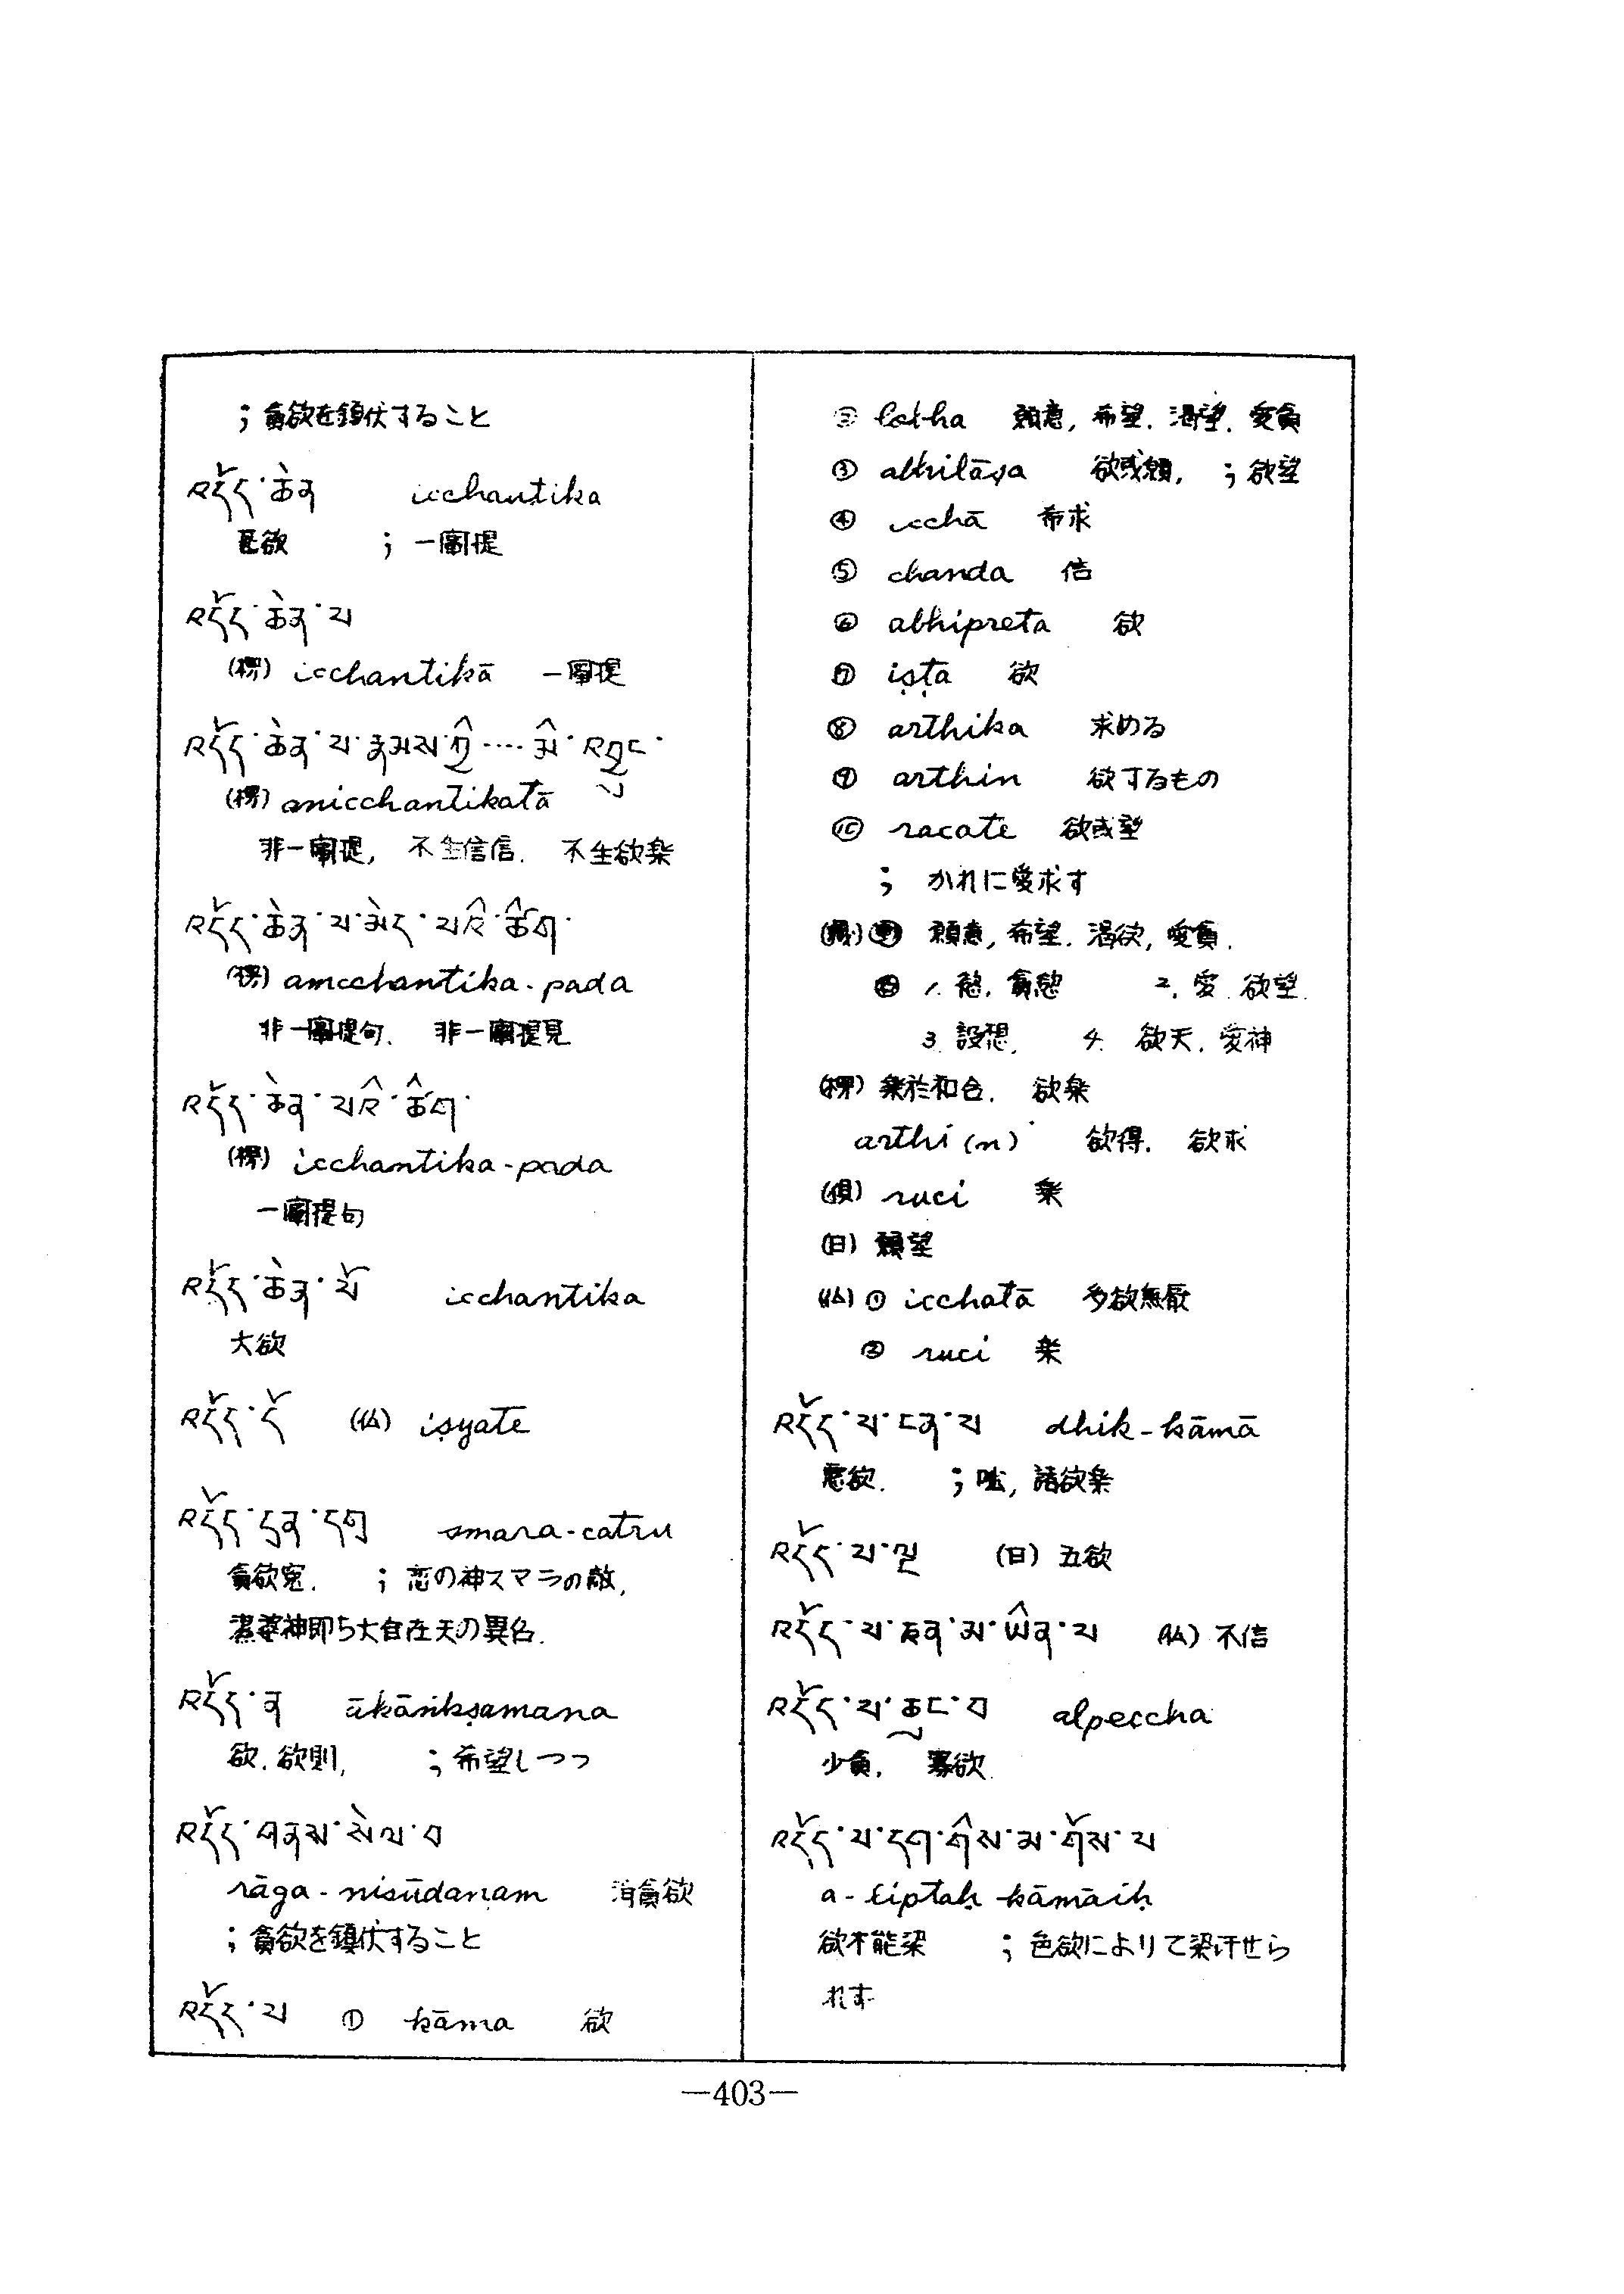 ；貪欲を鎮伏すること
འདོད་ཆེན icchantika
甚欲 ；一闡提
འདོད་ཆེན་པ
(楞) icchantikā 一闡提
འདོད་ཆེན་པ་རྣམས་ཀྱི་…་མི་འབྱུང་
(楞) anicchantikatā
非一闡提, 不生信信. 不生欲楽
འདོད་ཆེན་པ་མེད་པའི་ཚིག་
(楞) amcchantika-pada
非一闡提句. 非一闡提見
འདོད་ཆེན་པའི་ཚིག་
(楞) icchantika-pada
一闡提句
འདོད་ཆེན་པོ icchantika
大欲
འདོད་དོ (仏) iṣyate
འདོད་དུན་དགྲ smara-catru
貪欲寃. ；恋の神スマラの敵,
濕婆神即ち大自在天の異名.
འདོད་ན ākāṅkṣamana
欲. 欲則, ；希望しつつ
འདོད་གནམ་སེལ་བ
rāga-nisūdanam 消貪欲
；貪欲を鎮伏すること
འདོད་པ ① kāma 欲
② 願意, 希望. 渇望. 愛貪
③ abhilāṣa 欲或願, ；欲望
④ icchā 希求
⑤ chanda 信
⑥ abhipreta 欲
⑦ iṣṭa 欲
⑧ arthika 求める
⑨ arthin 欲するもの
⑩ racate 欲或望
； かれに愛求す
願意, 希望. 渇欲, 愛貪.
1. 慾. 貪慾 2. 愛. 欲望.
3. 設想. 4. 欲天. 愛神
(楞) 楽於和合. 欲楽
arthi(n) 欲得. 欲求
(倶) ruci 楽
(日) 願望
(仏) ① icchatā 多欲無厭
② ruci 楽
འདོད་པ་ངན་པ dhik-kāmā
悪欲. ；咄, 諸欲楽
འདོད་པ་ལྔ (日) 五欲
འདོད་པ་ཅན་མ་ཡིན་པ (仏) 不信
འདོད་པ་ཆུང་བ alpeccha
少貪. 寡欲.
འདོད་པ་དག་གིས་མ་གོས་པ
a-liptaḥ kāmaiḥ
欲不能染 ；色欲によりて染汗せら
れず
—403—